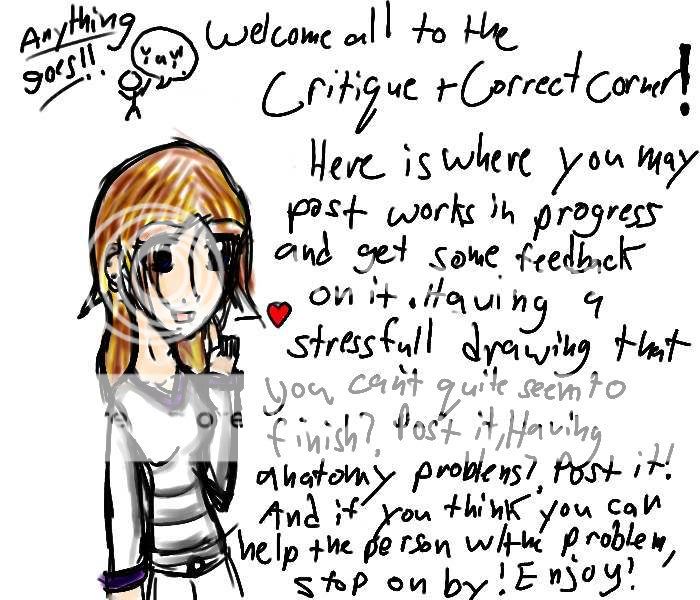 Anything
goes!!
Yay!
Welcome all to the
Critique + Correct Corner!
Here is where you may
post works in progress
and get some feedback
on it. Having a
stressfull drawing that
you can't quite seem to
finish? Post it, Having
anatomy problems? Post it!
And if you think you can
help the person w/the problem,
stop on by! Enjoy!